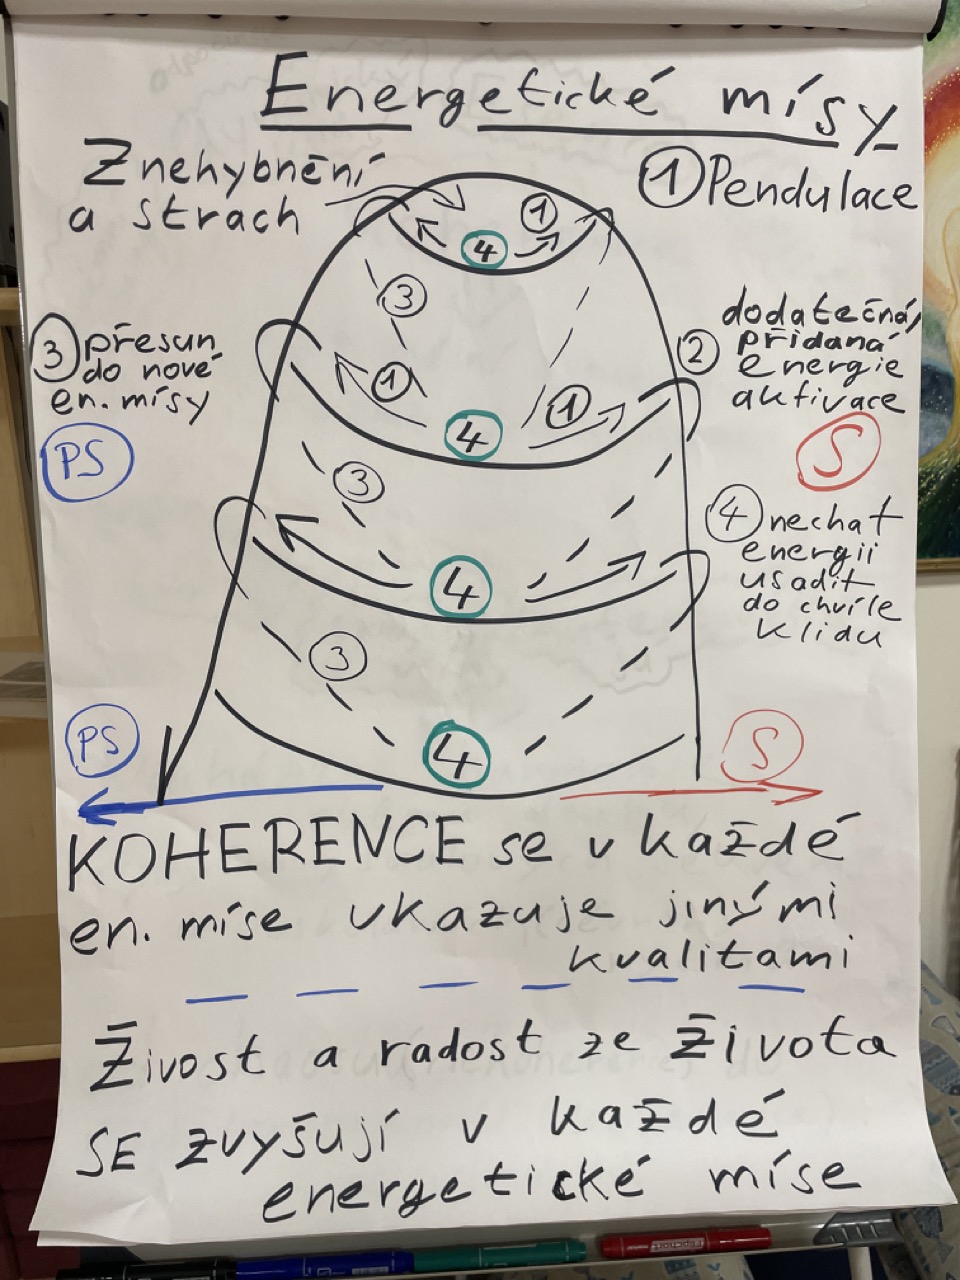 Energetické mísy
Znehybnění
a strach
1 Pendulace
1
4
3
3 přesun
do nové
en. mísy
PS
2 dodatečná,
přidaná
energie
aktivace
S
1
1
4
3
4 nechat
energii
usadit
do chvíle
klidu
4
3
PS
4
S
KOHERENCE se v každé
en. míse ukazuje jinými
kvalitami
Živost a radost ze života
SE zvyšují v každé
energetické míse